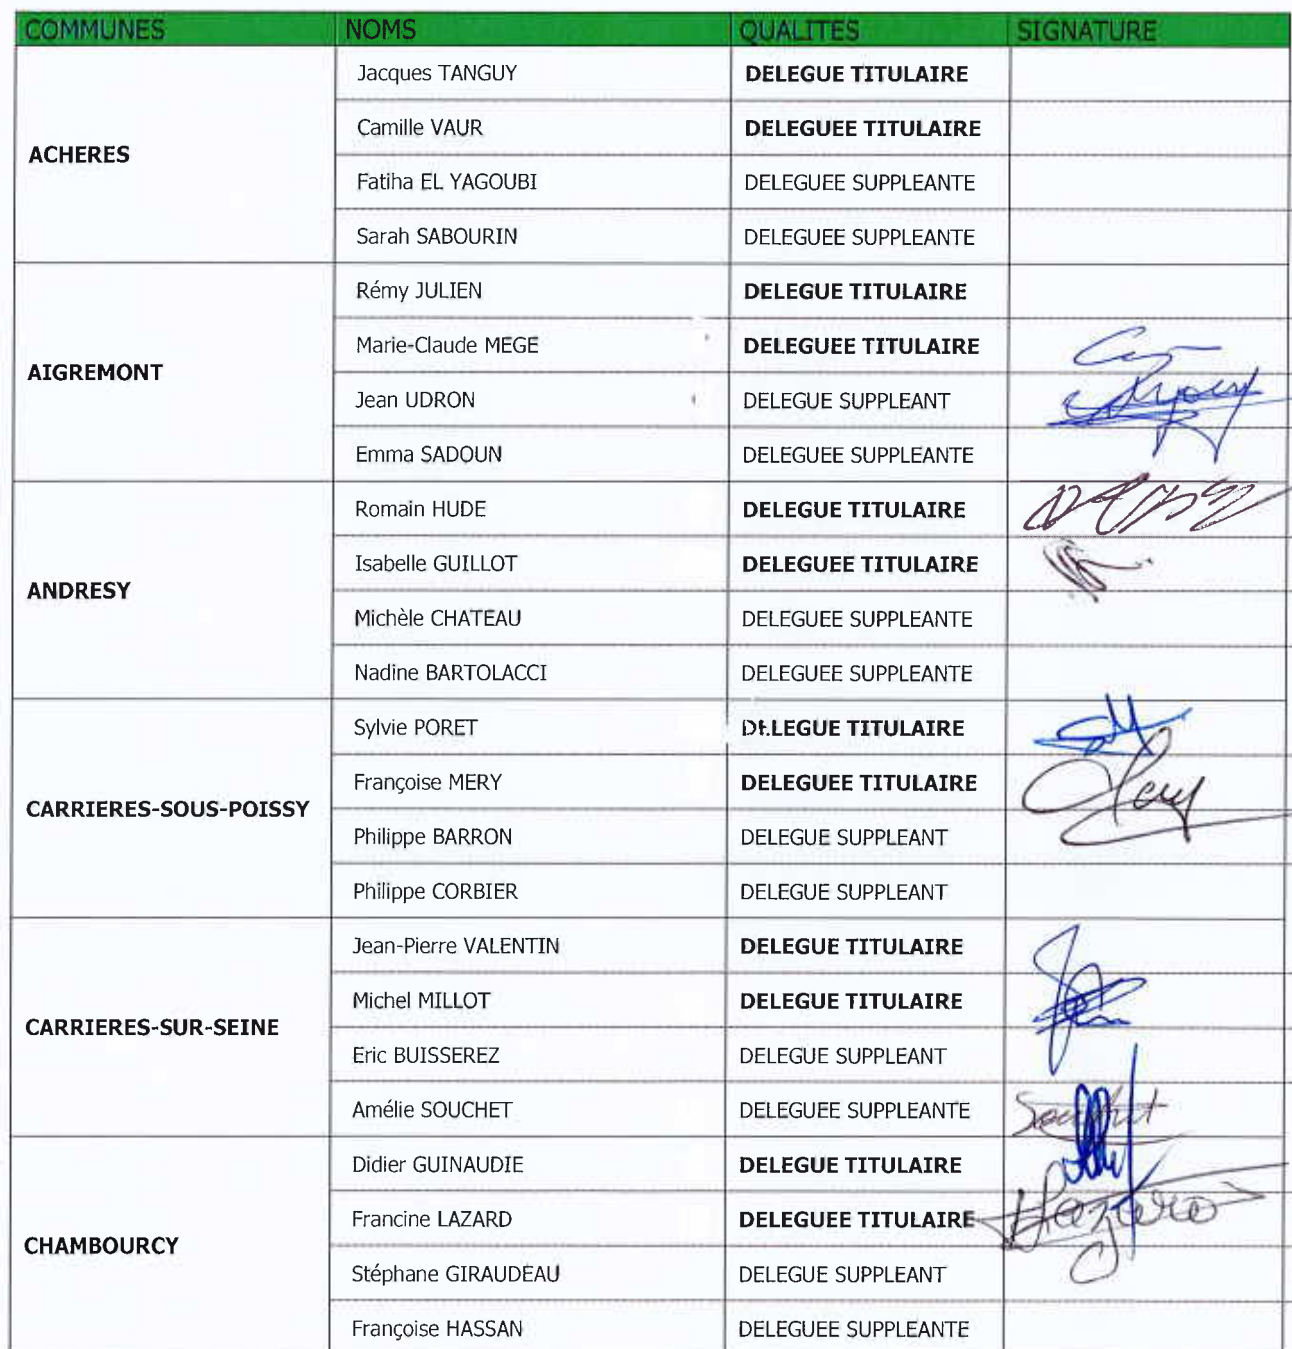 COMMUNES NOMS QUALITES SIGNATURE
ACHERES
Jacques TANGUY DELEGUE TITULAIRE
Camille VAUR DELEGUEE TITULAIRE
Fatiha EL YAGOUBI DELEGUEE SUPPLEANTE
Sarah SABOURIN DELEGUEE SUPPLEANTE
AIGREMONT
Rémy JULIEN DELEGUE TITULAIRE
Marie-Claude MEGE DELEGUEE TITULAIRE
Jean UDRON DELEGUE SUPPLEANT
Emma SADOUN DELEGUEE SUPPLEANTE
ANDRESY
Romain HUDE DELEGUE TITULAIRE
Isabelle GUILLOT DELEGUEE TITULAIRE
Michèle CHATEAU DELEGUEE SUPPLEANTE
Nadine BARTOLACCI DELEGUEE SUPPLEANTE
CARRIERES-SOUS-POISSY
Sylvie PORET DELEGUE TITULAIRE
Françoise MERY DELEGUEE TITULAIRE
Philippe BARRON DELEGUE SUPPLEANT
Philippe CORBIER DELEGUE SUPPLEANT
CARRIERES-SUR-SEINE
Jean-Pierre VALENTIN DELEGUE TITULAIRE
Michel MILLOT DELEGUE TITULAIRE
Eric BUISSEREZ DELEGUE SUPPLEANT
Amélie SOUCHET DELEGUEE SUPPLEANTE Souchet
CHAMBOURCY
Didier GUINAUDIE DELEGUE TITULAIRE
Francine LAZARD DELEGUEE TITULAIRE
Stéphane GIRAUDEAU DELEGUE SUPPLEANT
Françoise HASSAN DELEGUEE SUPPLEANTE